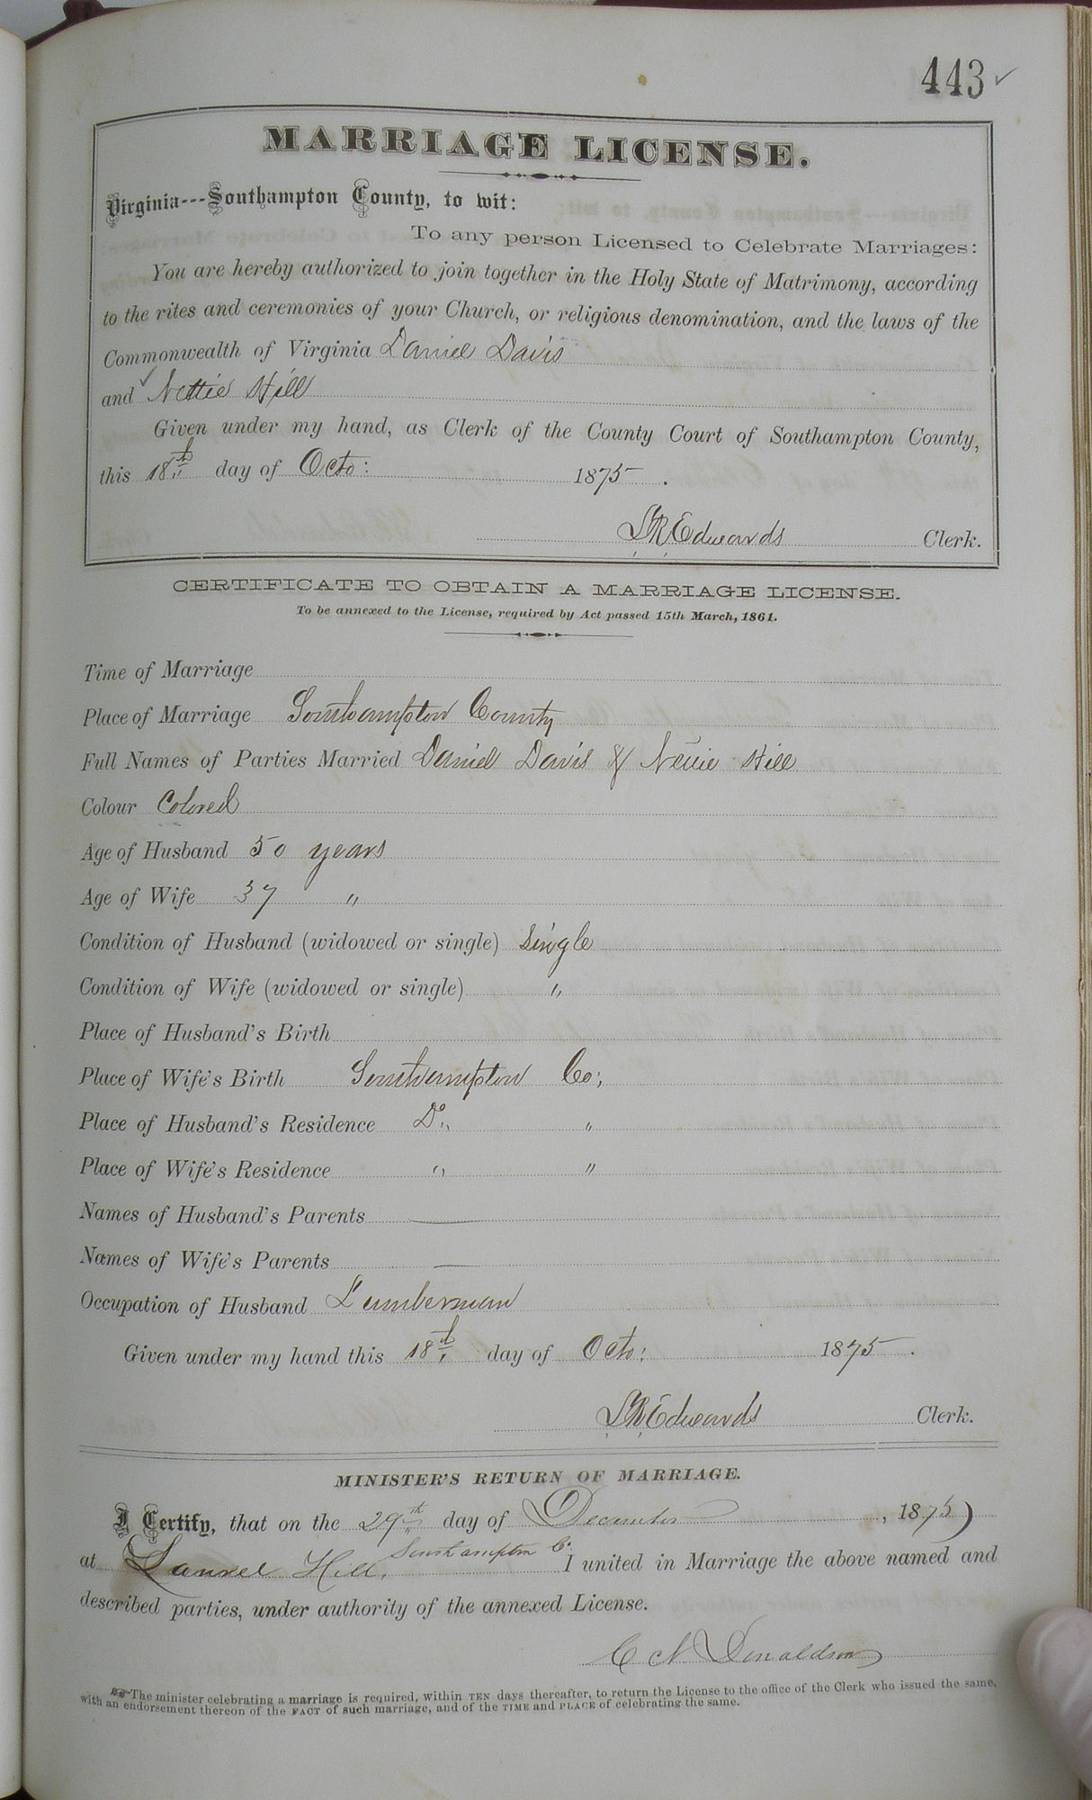 443 ✓
MARRIAGE LICENSE.
Virginia---Southampton County, to wit:
To any person Licensed to Celebrate Marriages:
You are hereby authorized to join together in the Holy State of Matrimony, according
to the rites and ceremonies of your Church, or religious denomination, and the laws of the
Commonwealth of Virginia Daniel Davis
and ✓ Nettie Hill
Given under my hand, as Clerk of the County Court of Southampton County,
this 18th day of Octo: 1875.
L R Edwards Clerk.
CERTIFICATE TO OBTAIN A MARRIAGE LICENSE.
To be annexed to the License, required by Act passed 15th March, 1861.
Time of Marriage
Place of Marriage Southampton County
Full Names of Parties Married Daniel Davis & Nettie Hill
Colour Colored
Age of Husband 50 years
Age of Wife 37 "
Condition of Husband (widowed or single) single
Condition of Wife (widowed or single) "
Place of Husband's Birth
Place of Wife's Birth Southampton Co;
Place of Husband's Residence Do "
Place of Wife's Residence " "
Names of Husband's Parents —
Names of Wife's Parents —
Occupation of Husband Lumberman
Given under my hand this 18th day of Octo: 1875.
L R Edwards Clerk.
MINISTER'S RETURN OF MARRIAGE.
I Certify, that on the 29th day of December, 1875)
at Laurel Hill, Southampton Co. I united in Marriage the above named and
described parties, under authority of the annexed License.
C N Donaldson
The minister celebrating a marriage is required, within TEN days thereafter, to return the License to the office of the Clerk who issued the same,
with an endorsement thereon of the FACT of such marriage, and of the TIME and PLACE of celebrating the same.